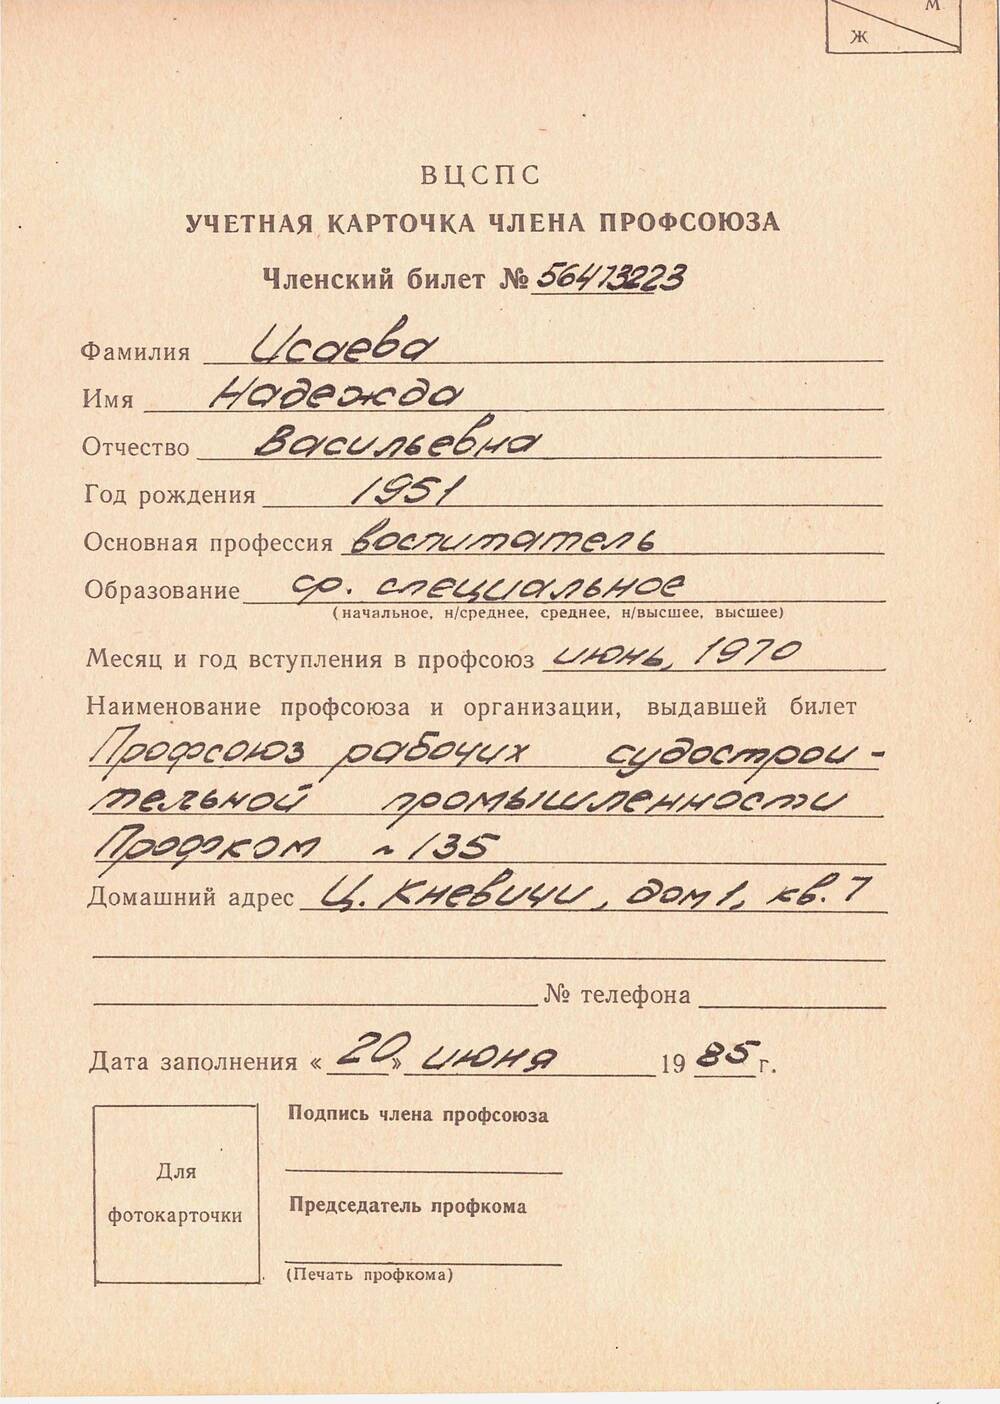 М
Ж
ВЦСПС
УЧЕТНАЯ КАРТОЧКА ЧЛЕНА ПРОФСОЮЗА
Членский билет № 56473223
Фамилия Исаева
Имя Надежда
Отчество Васильевна
Год рождения 1951
Основная профессия воспитатель
Образование ср. специальное
(начальное, н/среднее, среднее, н/высшее, высшее)
Месяц и год вступления в профсоюз июнь, 1970
Наименование профсоюза и организации, выдавшей билет
Профсоюз рабочих судострои-
тельной промышленности
Профком ~ 135
Домашний адрес Ц. Кневичи, дом 1, кв. 7
№ телефона
Дата заполнения « 20 » июня 19 85 г.
Подпись члена профсоюза
Для
фотокарточки
Председатель профкома
(Печать профкома)